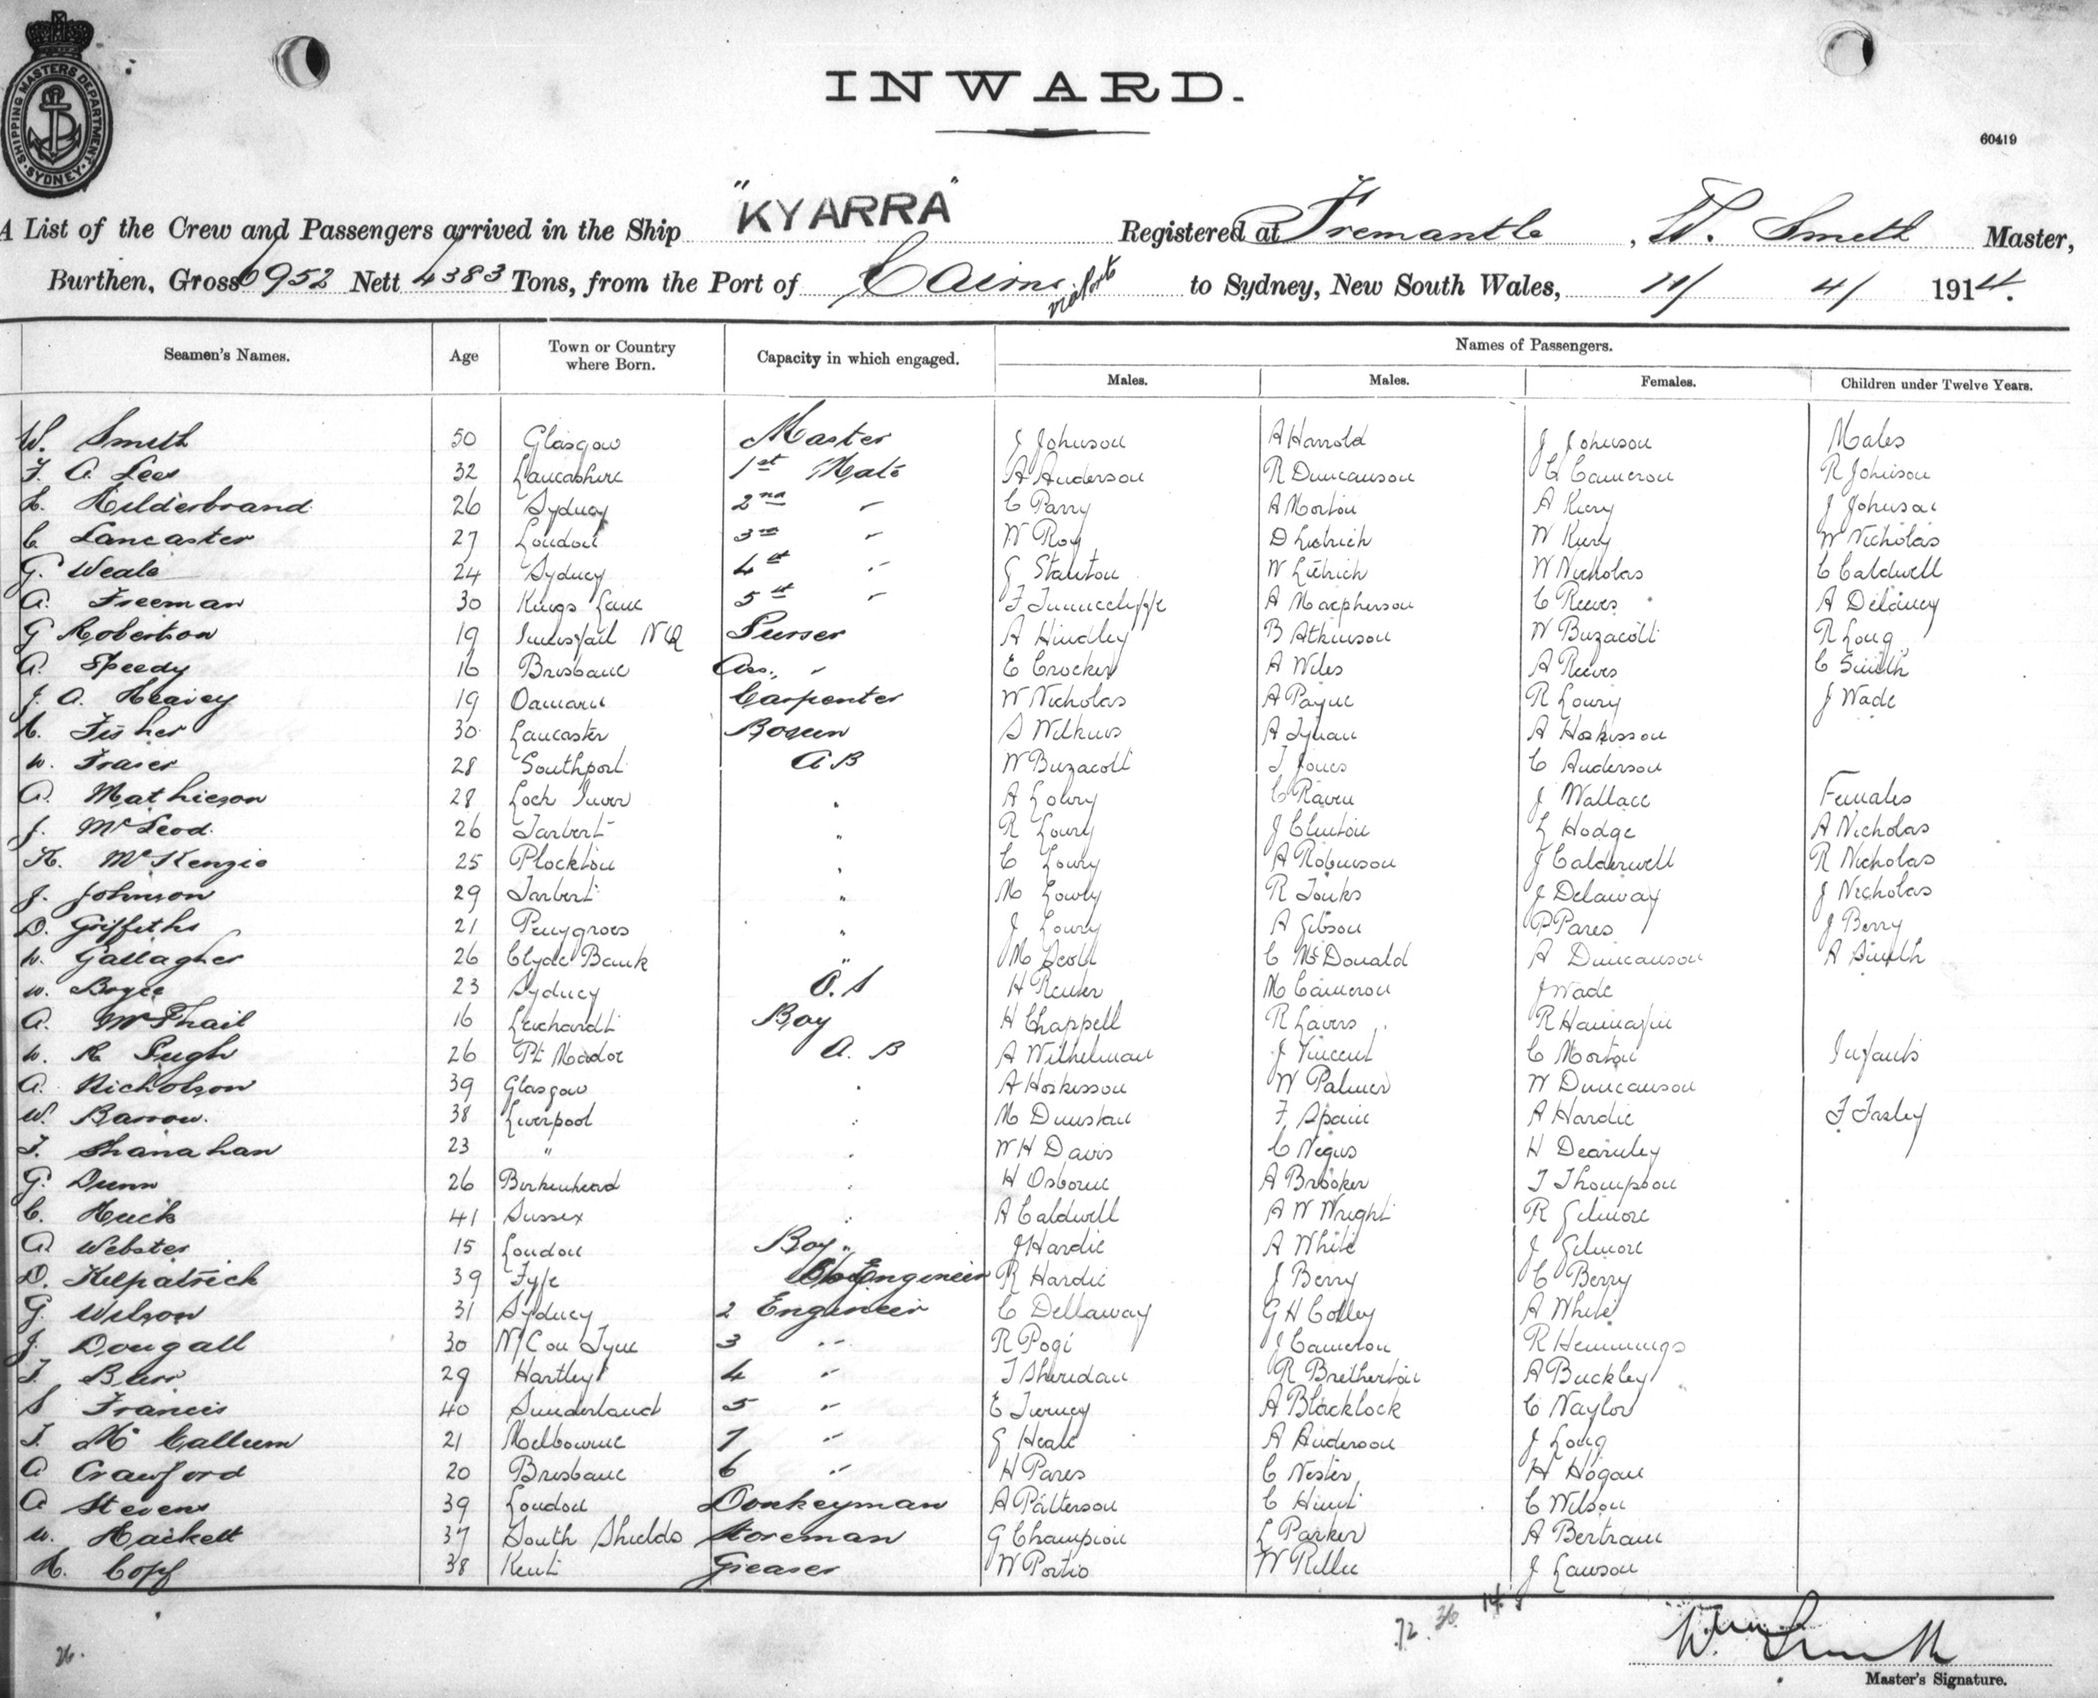 SHIPPING MASTERS DEPARTMENT · SYDNEY ·
INWARD.
60419
A List of the Crew and Passengers arrived in the Ship "KYARRA" Registered at Fremantle, W. Smith Master,
Burthen, Gross 6952 Nett 4383 Tons, from the Port of Cairns to Sydney, New South Wales, 11/ 4/ 1914.
Seamen's Names. Age Town or Country where Born. Capacity in which engaged. Names of Passengers.
Males. Males. Females. Children under Twelve Years.
W. Smith 50 Glasgow Master J Johnson A Harrold J Johnson Males
F. A. Lee 32 Lancashire 1st Mate A Anderson R Duncanson C Cameron R Johnson
H. Hilderbrand 26 Sydney 2nd " C Parry A Morton A Kury J Johnson
C. Lancaster 27 London 3rd " W Roy D Lietrich W Kury W Nicholas
G. Weale 24 Sydney 4th " G Stanton W Lietrich W Nicholas C Caldwell
A. Freeman 30 Kings Lane 5th " F Tunnecliffe A Macpherson C Reeves A Delaney
G Robertson 19 Innisfail NQ Purser A Hindley B Atkinson W Buzacott R Long
A. Speedy 16 Brisbane Ass. " E Crocker A Wiles A Reeves C Smith
J. A. Heavey 19 Oamaru Carpenter W Nicholas A Payne R Lowry J Wade
H. Fisher 30 Lancaster Bosun S Wilkins A Tynan A Hoskisson
W. Fraser 28 Southport A.B W Buzacott T Jones C Anderson
A. Mathieson 28 Loch Inver " A Lowry C Raven J Wallace Females
J. McLeod. 26 Tarbert " R Lowry J Clinton L Hodge A Nicholas
K. McKenzie 25 Plockton " C Lowry A Robinson J Calderwell R Nicholas
J. Johnson 29 Tarbert " M Lowry R Tonks J Delaway J Nicholas
D. Griffiths 21 Penygroes " J Lowry A Gibson P Pares J Berry
W. Gallagher 26 Clyde Bank " M Scott C McDonald A Duncanson A Smith
W. Boyce 23 Sydney O.S H Reuter M Cameron J Wade
A. McPhail 16 Leichardt Boy H Chappell R Lavers R Hannafin
W. R Pugh 26 Pt Madoc A. B A Wilhelman J Vincent C Morton Infants
A. Nicholson 39 Glasgow " A Hoskisson W Palmer W Duncanson
W. Barrow. 38 Liverpool " M Dunstan F Spain A Hardie F Fasley
T. Shanahan 23 " " W H Davis C Negus H Dearnley
G. Dunn 26 Birkenhead " H Osborne A Brooker T Thompson
C. Huck 41 Sussex " A Caldwell A W Wright R Gilmore
A Webster 15 London Boy " J Hardie A White J Gilmore
D. Kilpatrick 39 Fyfe Ch Engineer R Hardie J Berry C Berry
G. Wilson 31 Sydney 2 Engineer C Dellaway G H Colley A White
J. Dougall 30 N/C on Tyne 3 " R Pogi J Cameron R Hemmings
T. Burr 29 Hartley 4 " T Sheridan R Bretherton A Buckley
S Francis 40 Sunderland 5 " E Turney A Blacklock C Naylor
T. McCallum 21 Melbourne 7 " G Heall A Anderson J Long
A Crawford 20 Brisbane 6 " H Pares C Nester H Hogan
A Stevens 39 London Donkeyman A Patterson C Hunt C Wilson
W. Hackett 37 South Shields Storeman G Champion L Parker A Bertram
H. Copp 38 Kent Greaser W Portio W Rillie J Lawson
72 36 14
26.
Wm Smith
Master's Signature.